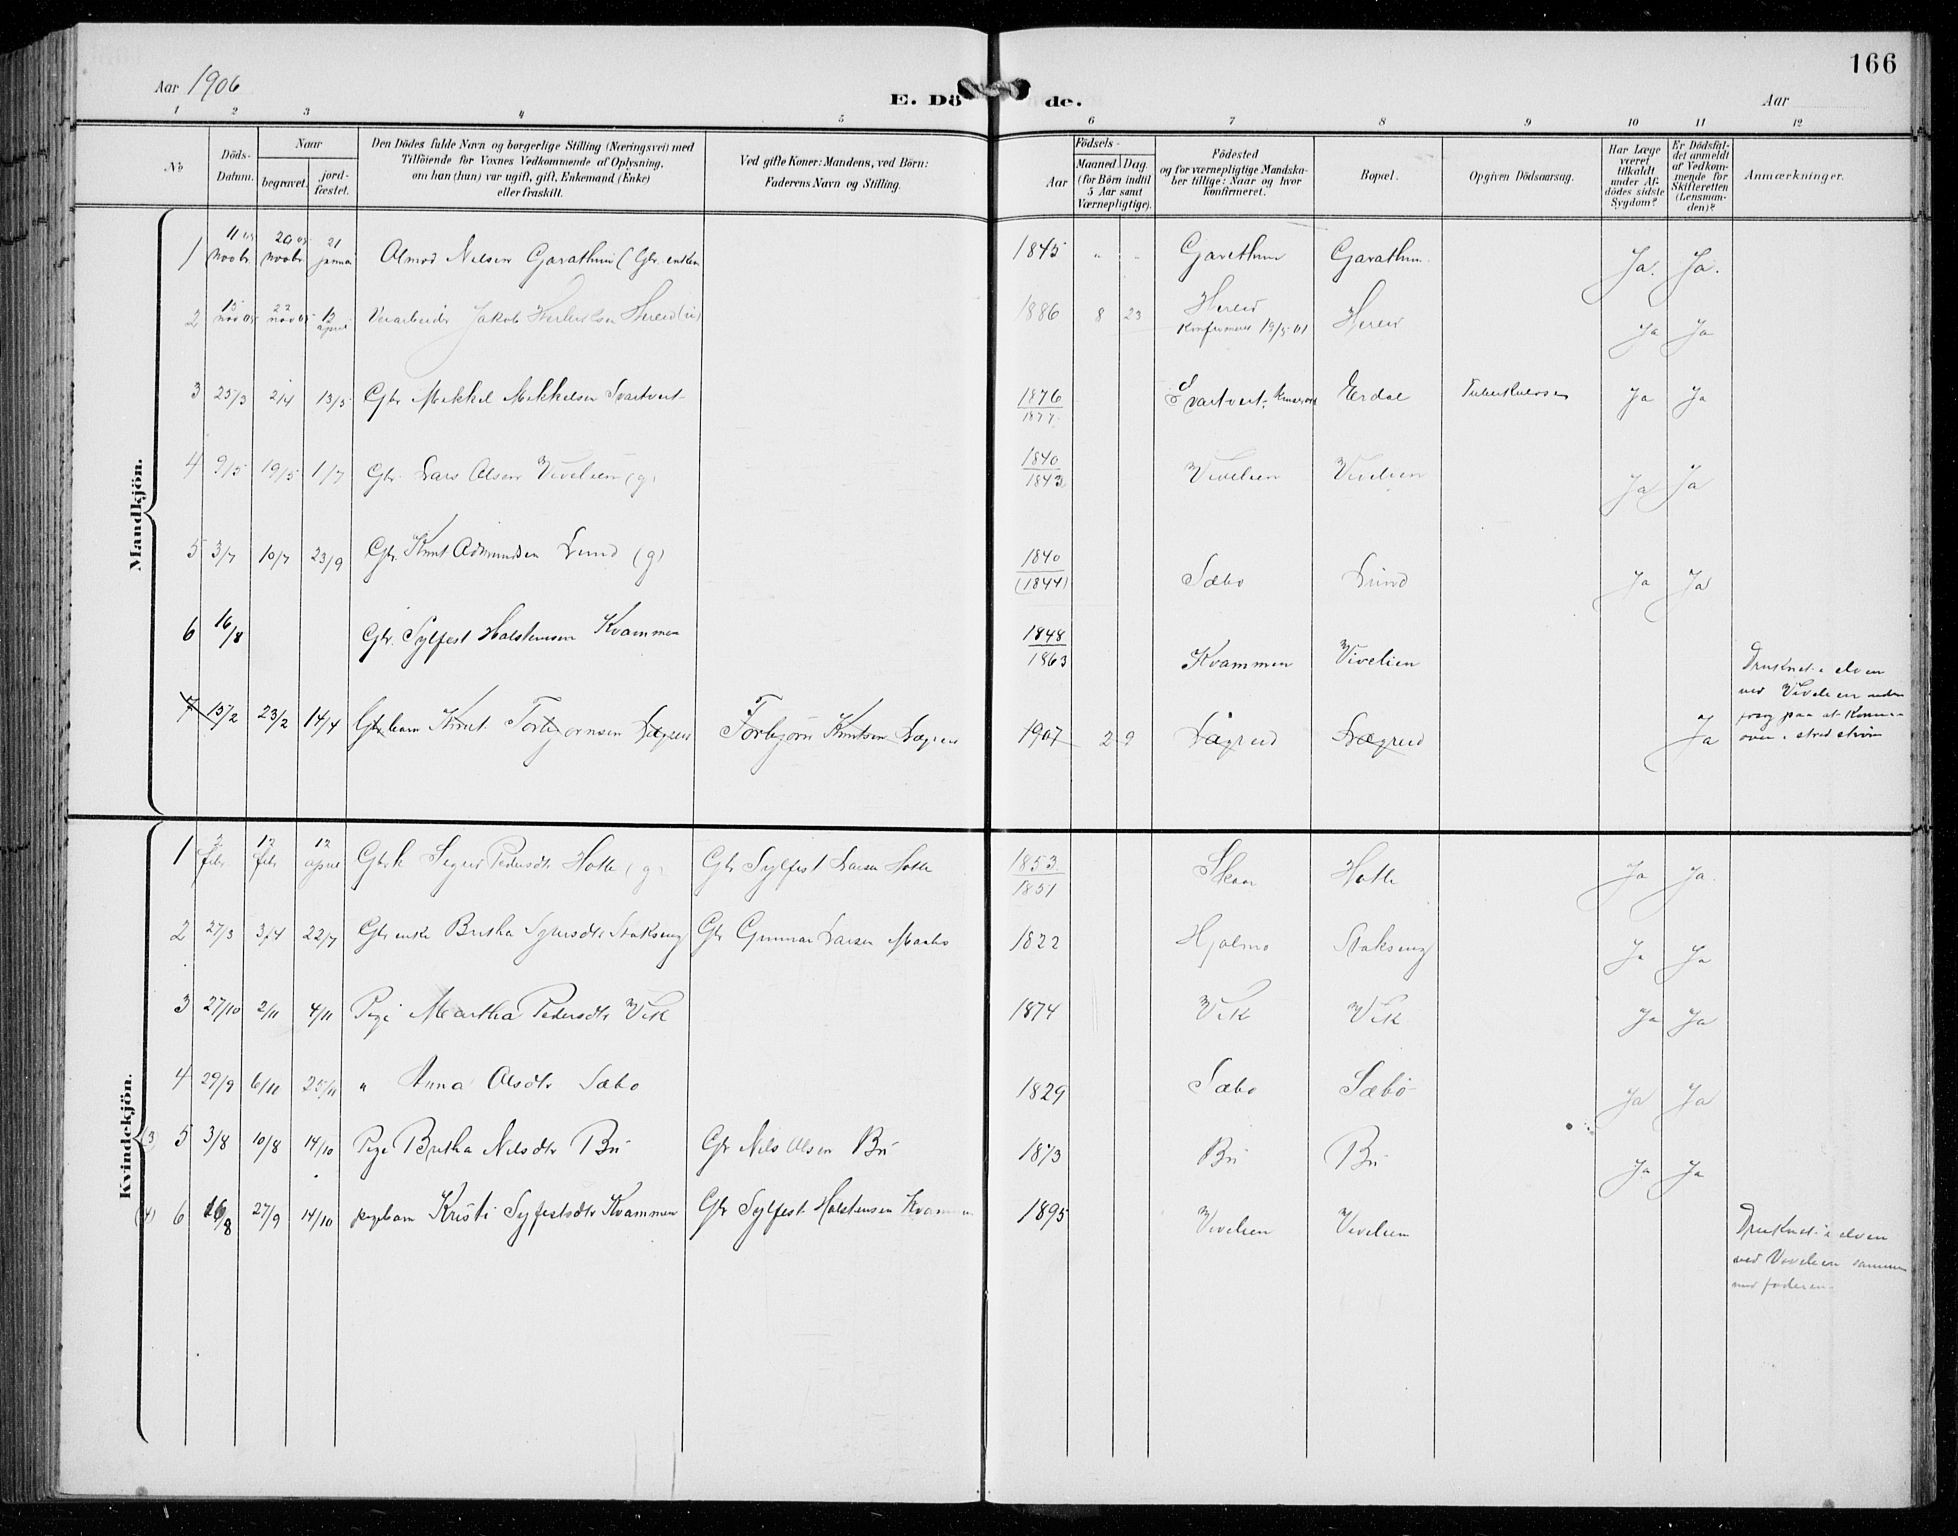 166
Aar 1906
E. Dö de.
Aar
1 2 3 4 5 6 7 8 9 10 11 12
No
Döds-
Datum.
Naar
begravet.
jord-
fæstet.
Den Dödes fulde Navn og borgerlige Stilling (Næringsvei) med
Tilföiende for Voxnes Vedkommende af Oplysning,
om han (hun) var ugift, gift, Enkemand (Enke)
eller fraskilt.
Ved gifte Koner: Mandens, ved Börn:
Faderens Navn og Stilling.
Födsels-
Aar
Maaned. Dag.
(for Börn indtil
5 Aar samt
Værnepligtige).
Födested
og for værnepligtige Mandska-
ber tillige: Naar og hvor
konfirmeret.
Bopæl.
Opgiven Dödsaarsag.
Har Læge
været
tilkaldt
under Af-
dödes sidste
Sygdom?
Er Dödsfal-
det anmeldt
af Vedkom-
mende for
Skifteretten
(Lensman-
den)?
Anmærkninger.
Mandkjön.
1 11 05 Novbr 20 05 Novbr 21 Januar Almod Nilsen Garathun (Gbr. enkem 1845 " " Garethun Garathun Ja. Ja.
2 15 nov 05 22 nov 05 12 april Veiarbeider Jakob Hereid (u) 1886 8 23 Hereid Konfirmeret 19/5 01 Hereid Ja Ja
3 25/3 2/4 13/5 Gbr Mikkel Mikkelsen Svartveit 1876 1877 Svartveit Erdal Tuberkulose Ja Ja
4 9/5 19/5 1/7 Gbr. Lars Olsen Vivelien (g) 1840 1843 Vivelien Vivelien Ja Ja
5 3/7 10/7 23/9 Gbr. Knut Asmundsen Lund (g) 1840 (1844) Sæbo Lund Ja Ja
6 16/8 Gbr. Sylfest Halstensen Kvammen 1848 1863 Kvammen Vivelien
Druknet i elven
ved Vivelien under
forsøg paa at komme
over i strid strøm
7 15/2 23/2 14/4 Gbr barn Knut Torbjornsen Lægreid Torbjørn Knutsen Lægreid 1907 2 9 Lægreid Lægreid Ja
Kvindekjön.
1 2 febr 12 febr 12 april Gbrk Sigrid Pedersdtr Hotle (g) Gbr Sylfest Larsen Hotle 1853 1851 Skaar Hotle Ja Ja.
2 27/3 3/4 22/7 Gbr enke Britha Sjursdtr Stokseng Gbr Gunnar Larsen Maabo 1822 Hjolmo Stokseng Ja Ja
3 27/10 2/11 4/11 Pige Martha Pedersdtr Vik 1874 Vik Vik Ja Ja
4 29/9 6/11 25/11 " Anna Olsdtr Sæbo 1829 Sæbo Sæbø Ja Ja
(3 5 3/8 10/8 14/10 Pige Britha Nilsdtr Bu Gbr Nils Olsen Bu 1873 Bu Bu Ja Ja
(4) 6 16/8 27/9 14/10 pigebarn Kristi Syfestsdtr Kvammen Gbr Sylfest Halstensen Kvammen 1895 Vivelien Vivelien
Druknet i elven
ved Vivelien sammen
med faderen